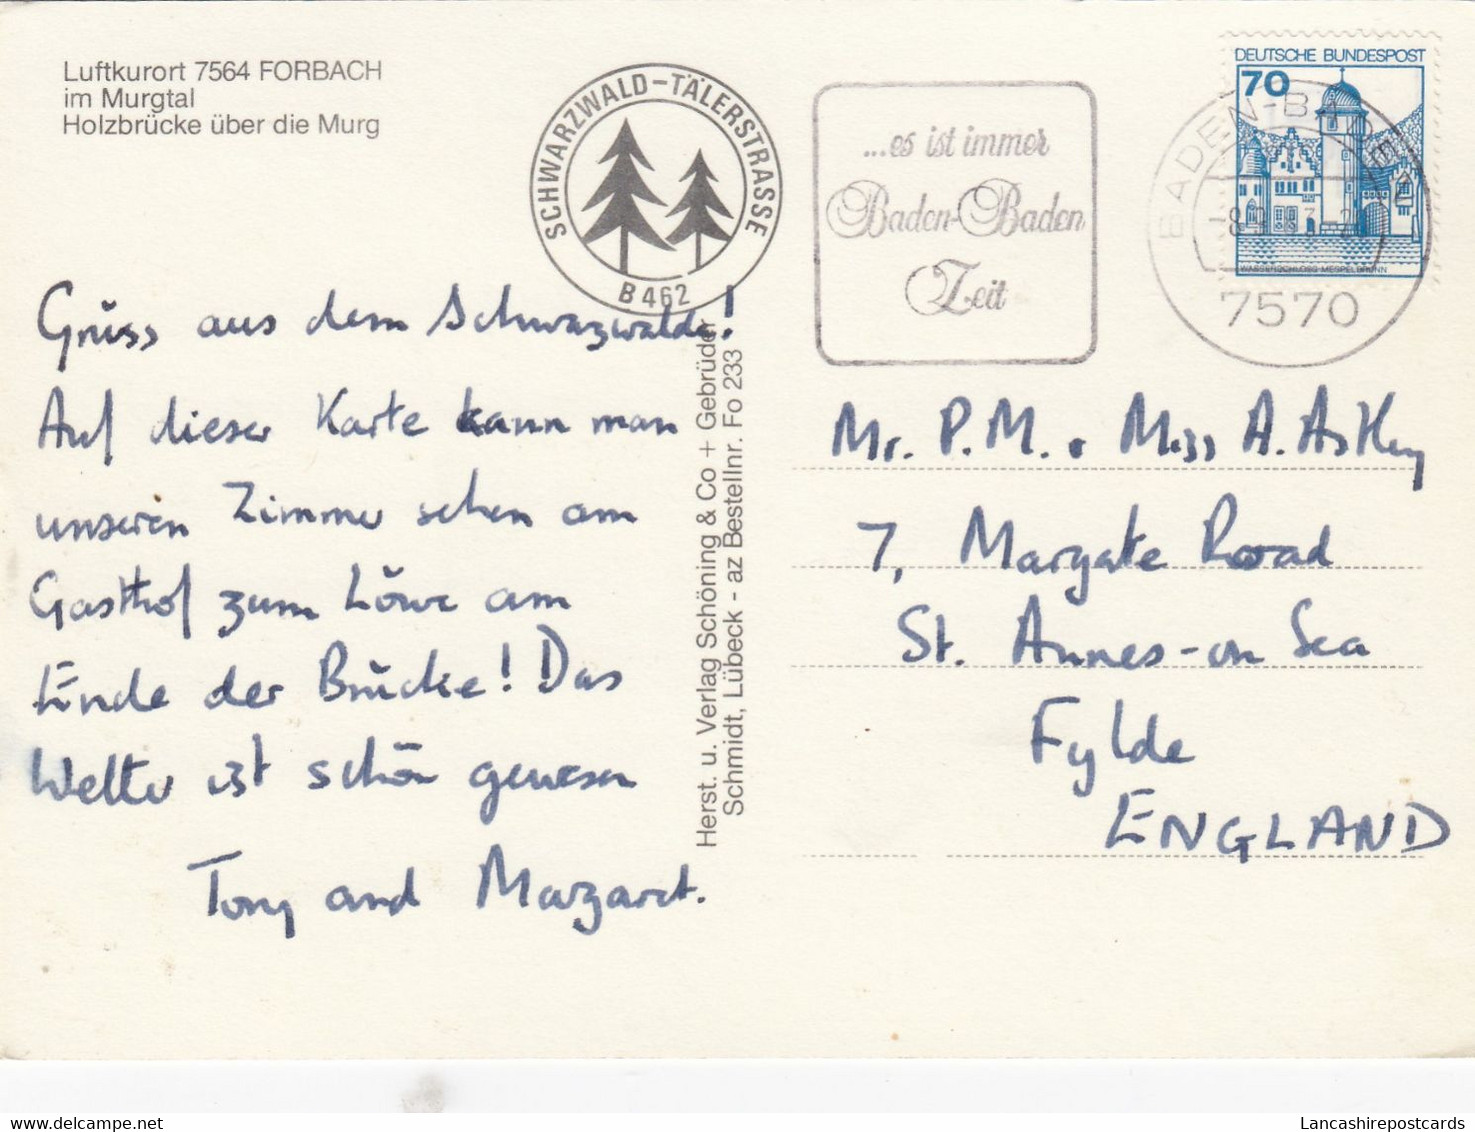 Luftkurort 7564 FORBACH
im Murgtal
Holzbrücke über die Murg
SCHWARZWALD-TÄLERSTRASSE
B 462
...es ist immer
Baden-Baden
Zeit
DEUTSCHE BUNDESPOST
70
WASSERSCHLOSS MESPELBRUNN
BADEN-BADEN
7570
Grüss aus dem Schwazwalde!
Auf dieser Karte kann man
unseren Zimmer sehen am
Gasthof zum Löwe am
Ende der Brücke! Das
Welter ist schön gewesen
Tony and Margaret.
Herst. u. Verlag Schöning & Co + Gebrüder
Schmidt, Lübeck - az Bestellnr. Fo 233
Mr. P.M. & Miss A. Astley
7, Margate Road
St. Annes-on Sea
Fylde
ENGLAND
Lancashirepostcards